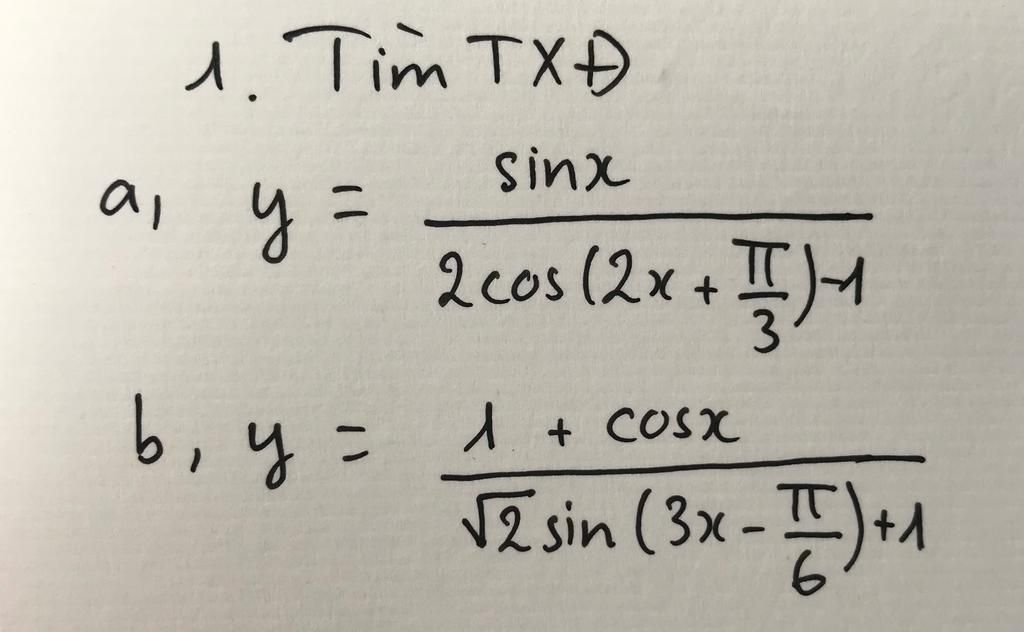 1. Tìm TXĐ
a, y = sinx / (2cos(2x + π/3) - 1)
b, y = (1 + cosx) / (√2 sin(3x - π/6) + 1)